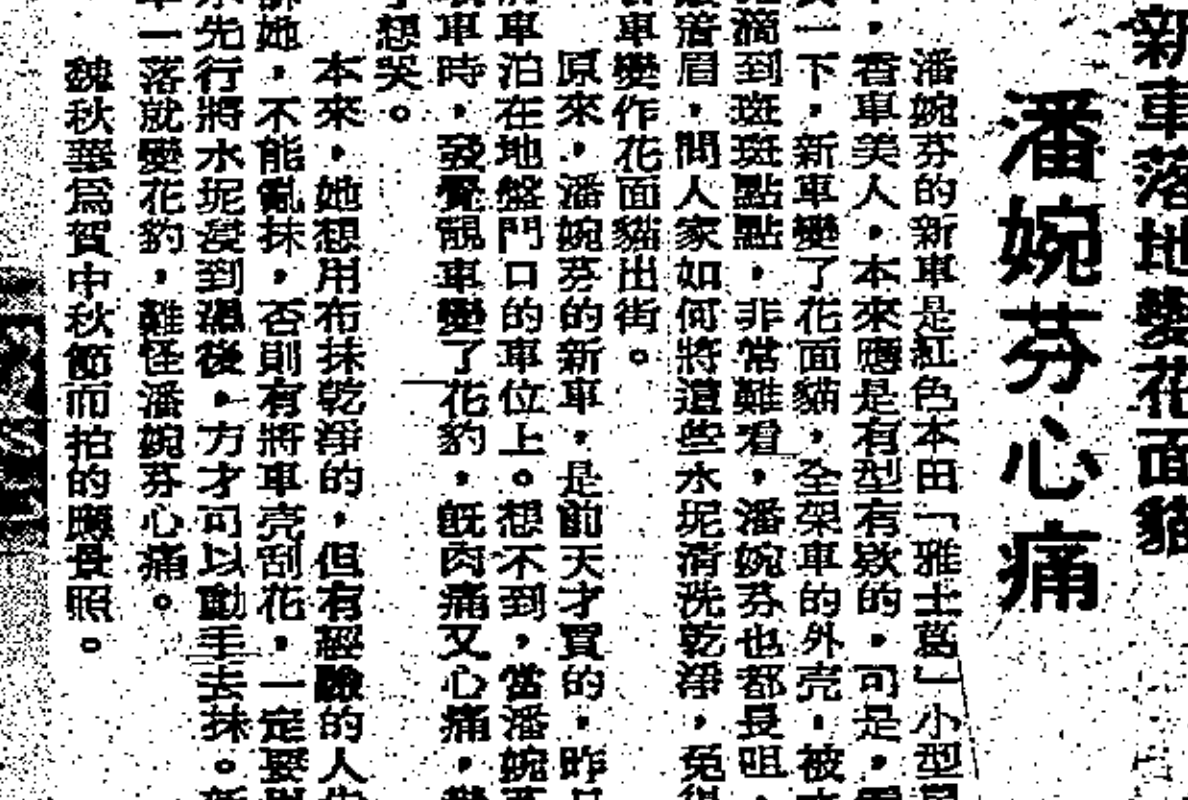 新車落地變花面貓
潘婉芬心痛
潘婉芬的新車是紅色本田「雅士葛」小型
，香車美人，本來應是有型有款的，可是，
一下，新車變了花面貓，全架車的外壳，被
滴到斑斑點點，非常難看，潘婉芬也都長咀，
着眉，問人家如何將這些水坭清洗乾淨，免
車變作花面貓出街。
原來，潘婉芬的新車，是前天才買的，昨
車泊在地盤門口的車位上。想不到，當潘婉芬
車時，發覺靚車變了花豹，旣肉痛又心痛，
想哭。
本來，她想用布抹乾淨的，但有經驗的人
她，不能亂抹，否則有將車壳刮花，一定要
先行將水坭浸到濕後，方才可以動手去抹。新
一落就變花豹，難怪潘婉芬心痛。
魏秋華爲賀中秋節而拍的應景照。